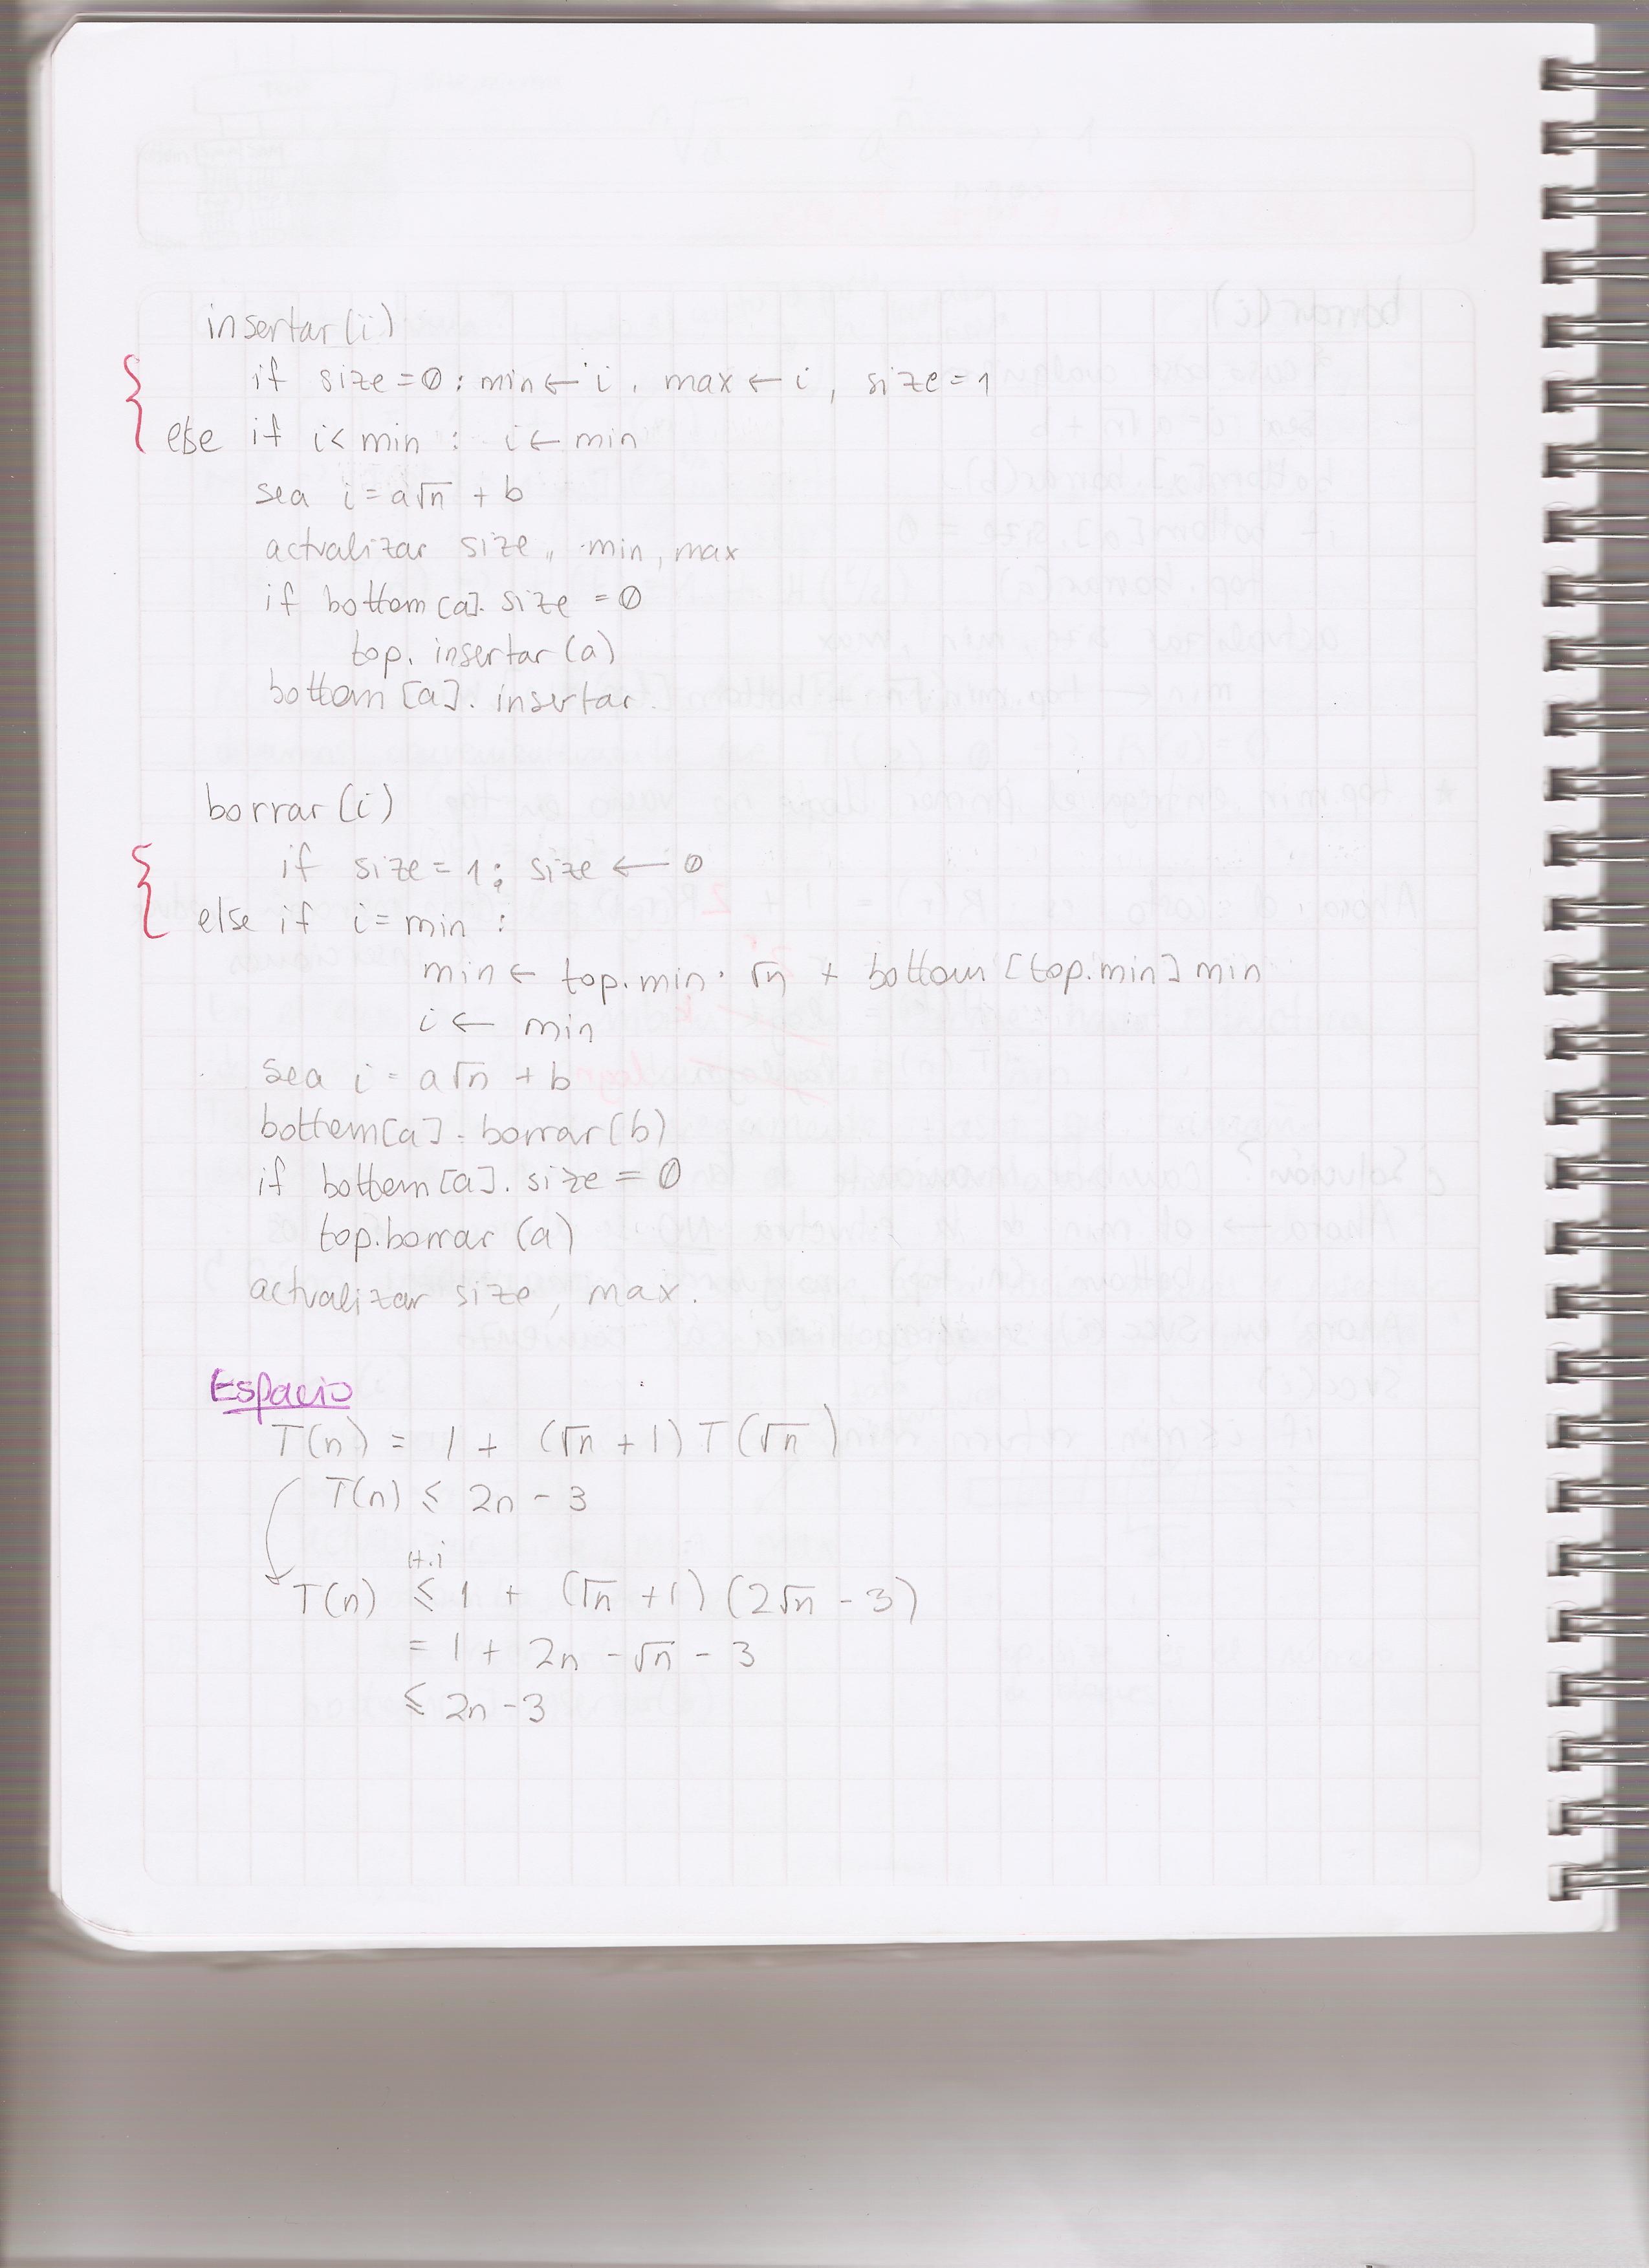 insertar(i)
if size = 0 : min ← i, max ← i, size = 1
else if i < min : i ← min
sea i = a√n + b
actualizar size, min, max
if bottom[a]. size = 0
top. insertar(a)
bottom[a]. insertar.
borrar(i)
if size = 1 : size ← 0
else if i = min :
min ← top.min · √n + bottom[top.min] min
i ← min
sea i = a√n + b
bottom[a]. borrar(b)
if bottom[a]. size = 0
top.borrar (a)
actualizar size, max.
Espacio
T(n) = 1 + (√n + 1) T(√n)
T(n) ≤ 2n - 3
H.i
T(n) ≤ 1 + (√n + 1) (2√n - 3)
= 1 + 2n - √n - 3
≤ 2n - 3